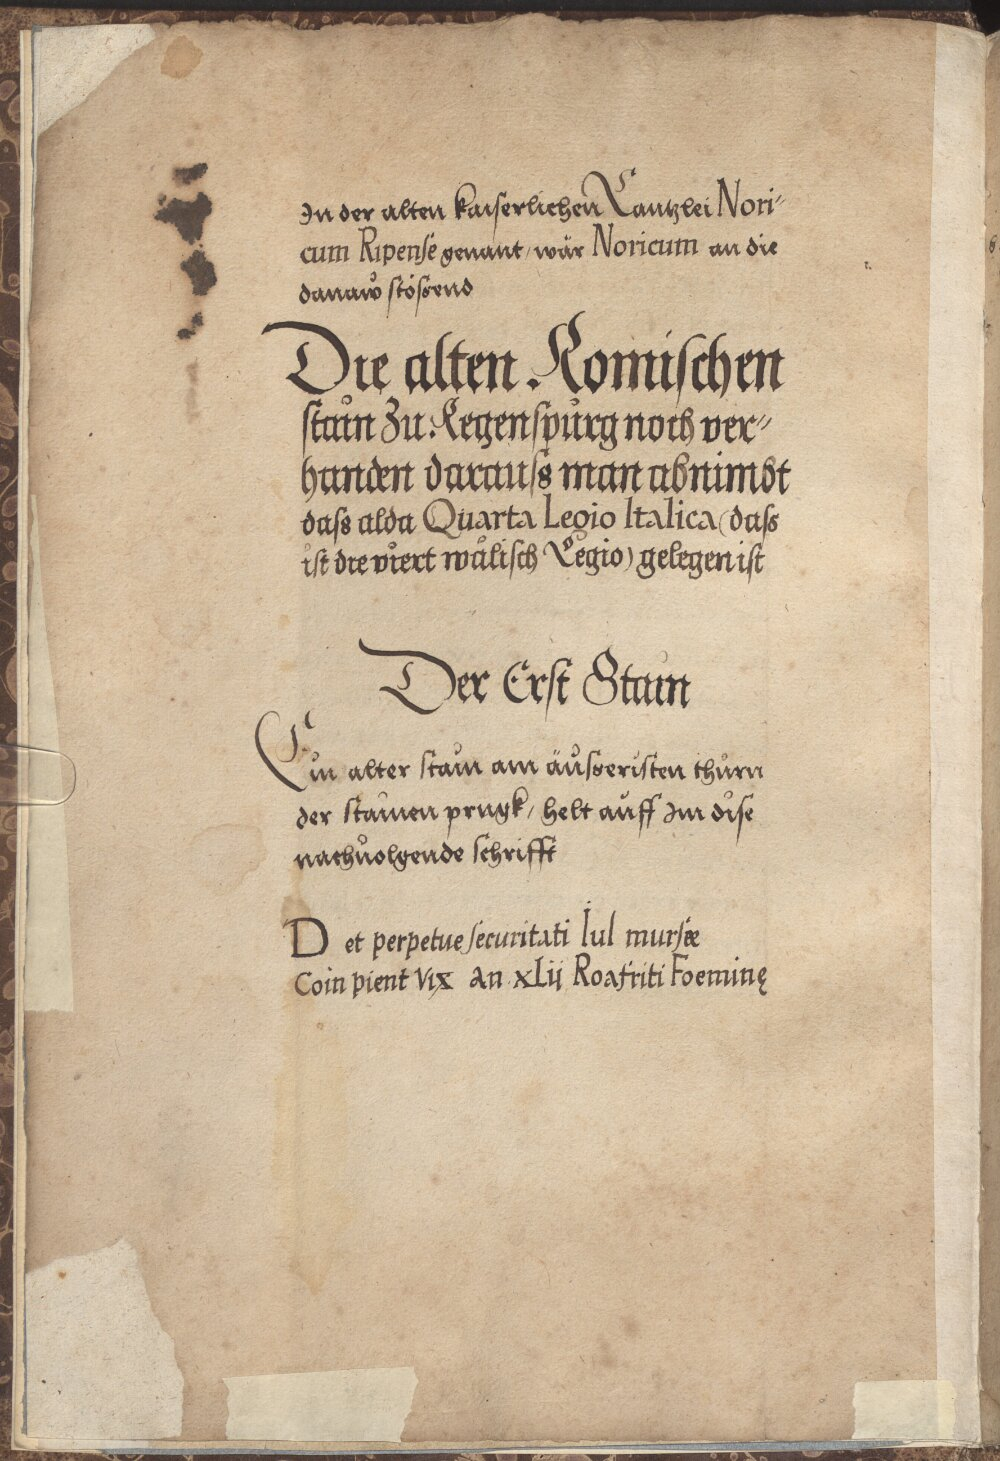 In der alten kaiserlichen Cantzlei Nori-
cum Ripense genant, wär Noricum an die
danaw stössend
Die alten Romischen
stain Zu Regenspurg noch ver-
handen darauss man abnimbt
dass alda Quarta Legio Italica (dass
ist die viert wälisch Legio) gelegen ist
Der Erst Stain
Ein alter stain am äusseristen thurn
der stainen prugk, helt auff Im dise
nachuolgende schrifft
D et perpetue securitati Iul mursæ
Coin pient Vix An xLij Roafriti Foeminę